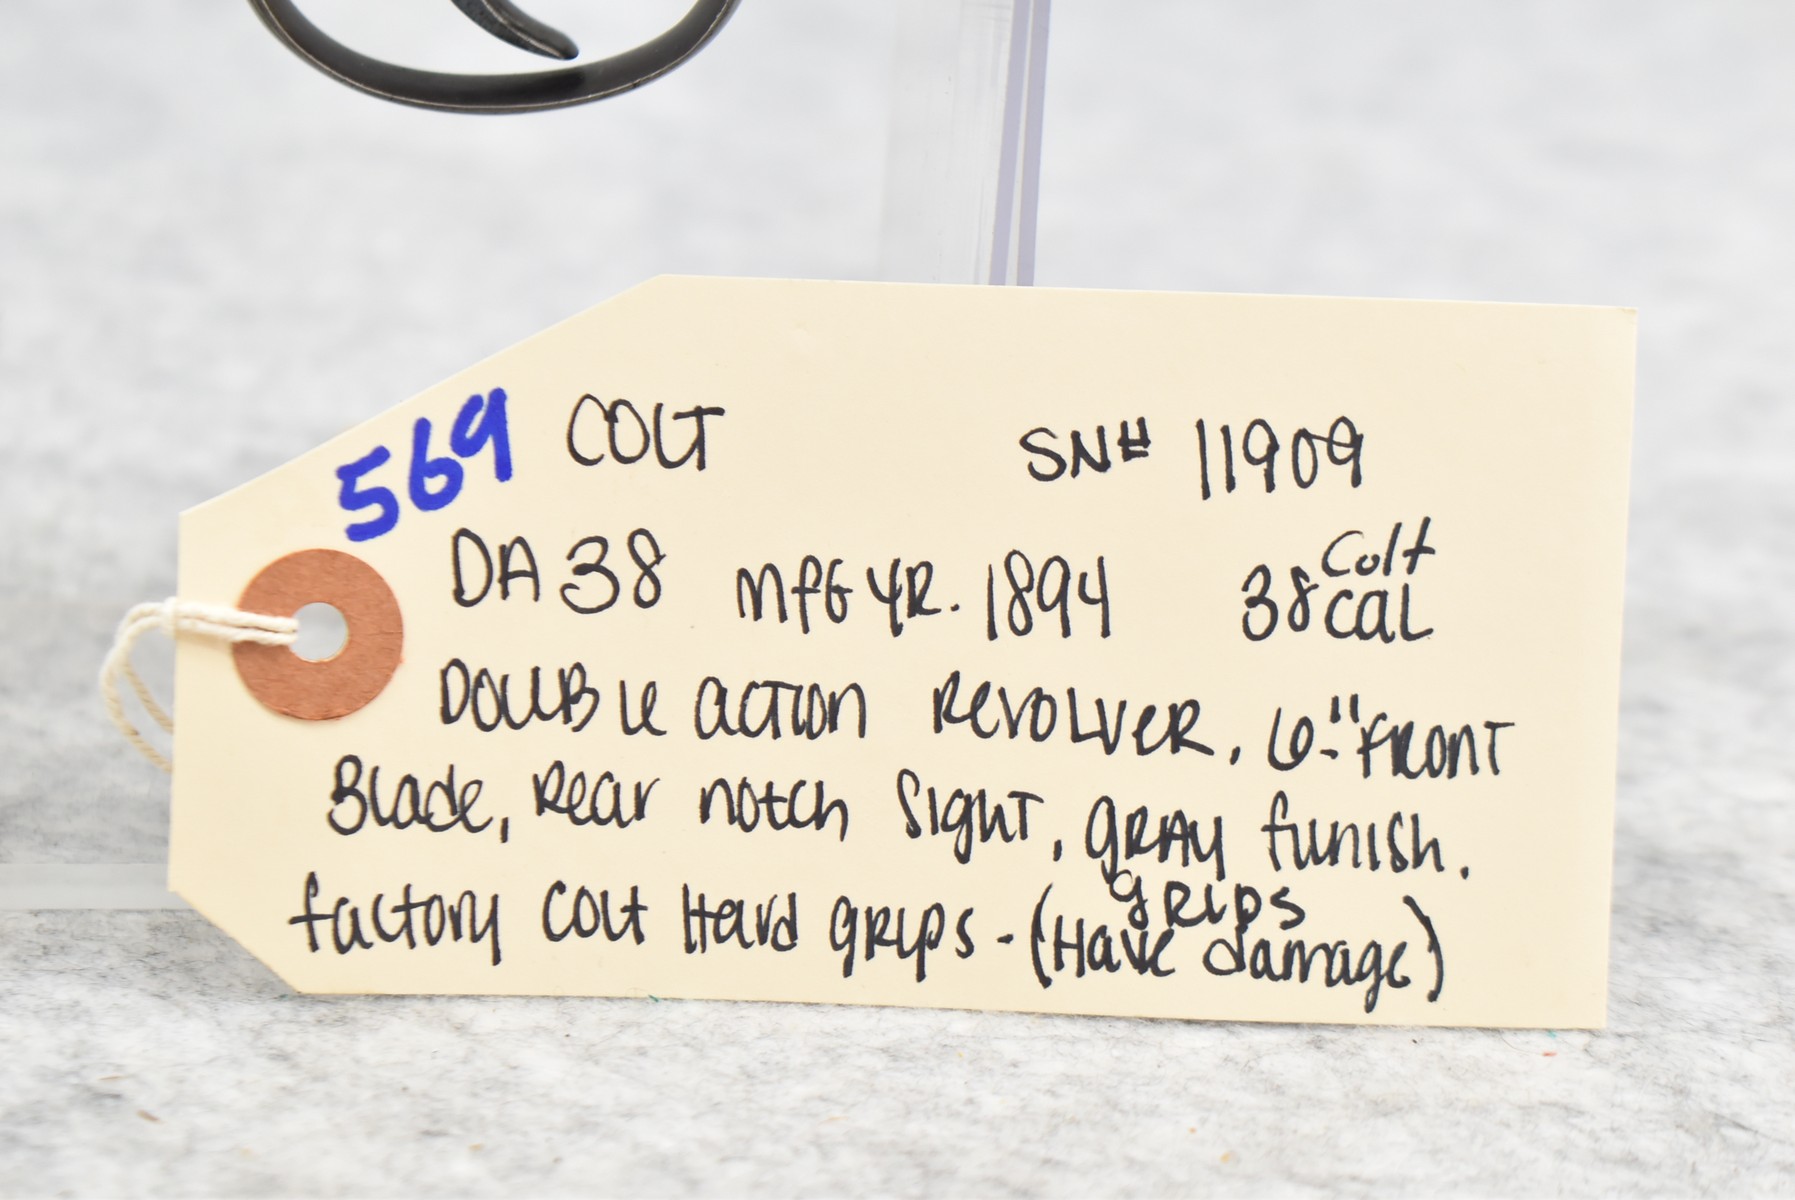 569 COLT SN# 11909
DA 38 MFG YR. 1894 38 Colt CAL
DOUBLE ACTION REVOLVER, 6" FRONT
Blade, Rear notch Sight, GRAY funish.
factory Colt Hard GRIPS - (Have GRIPS damage)